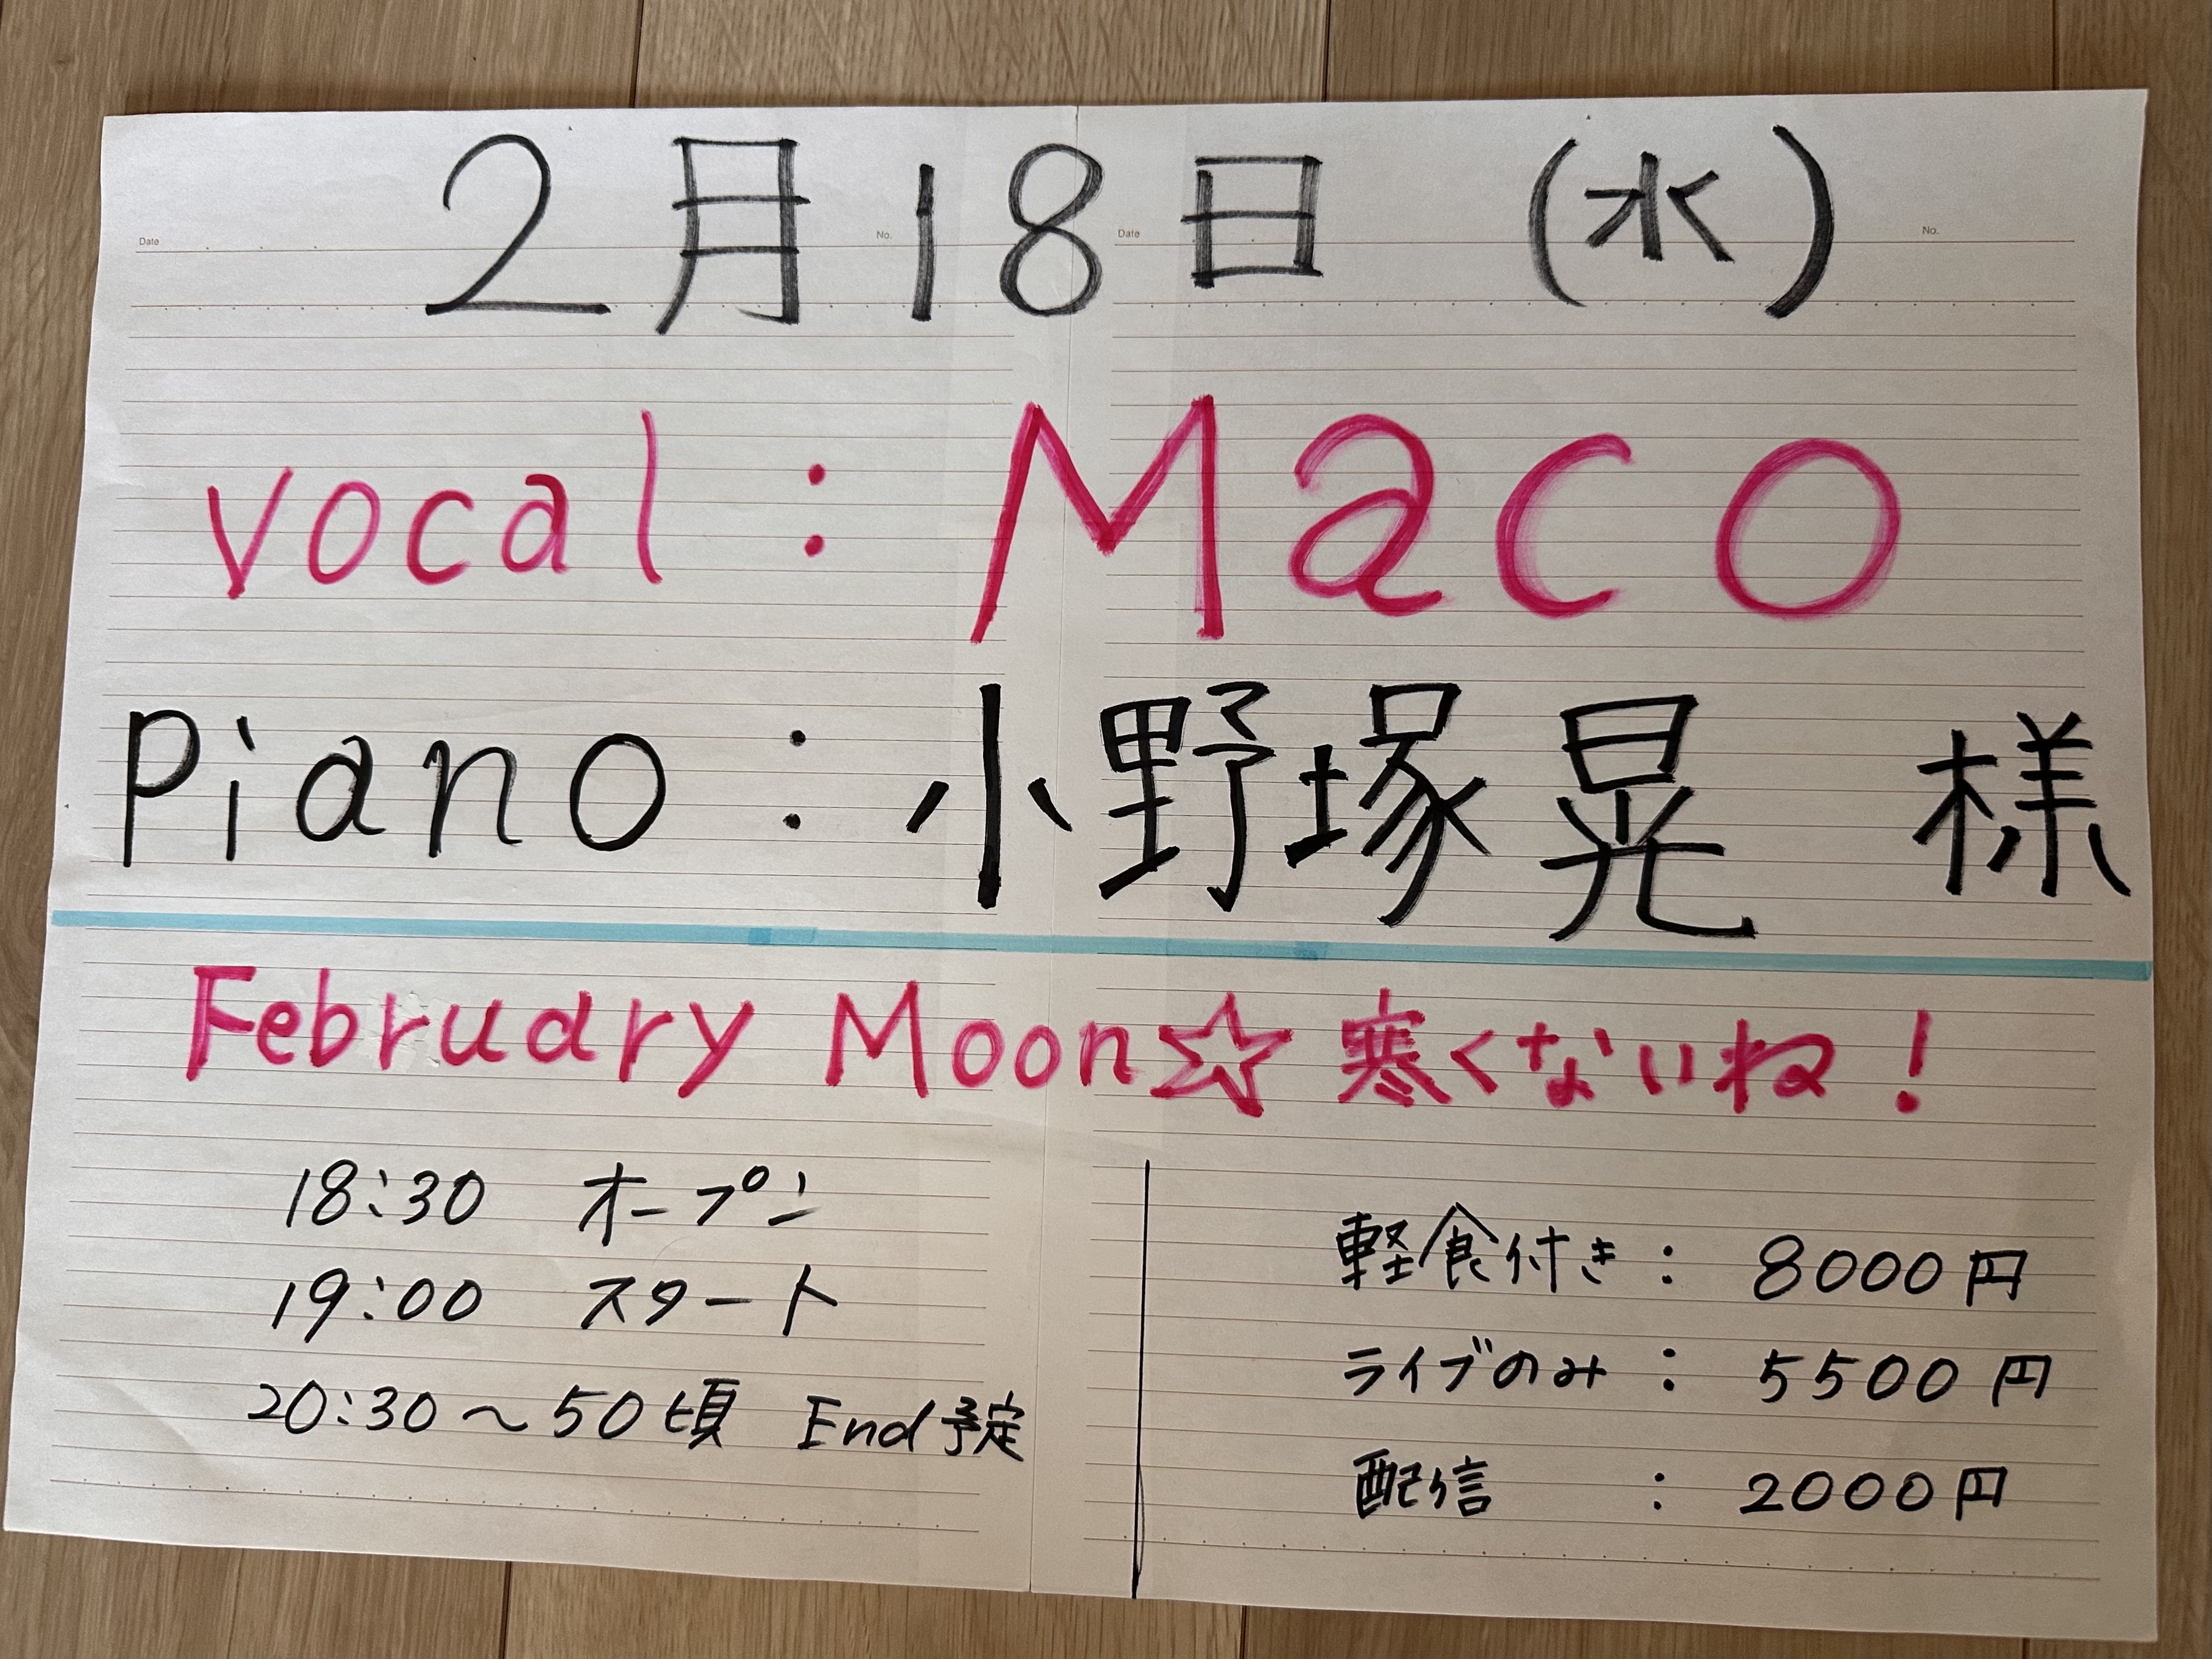 2月18日 (水)
Date No. Date No.
vocal : Maco
Piano : 小野塚晃 様
February Moon☆寒くないね!
18:30 オープン
19:00 スタート
20:30〜50頃 End予定
軽食付き : 8000円
ライブのみ : 5500円
配信 : 2000円